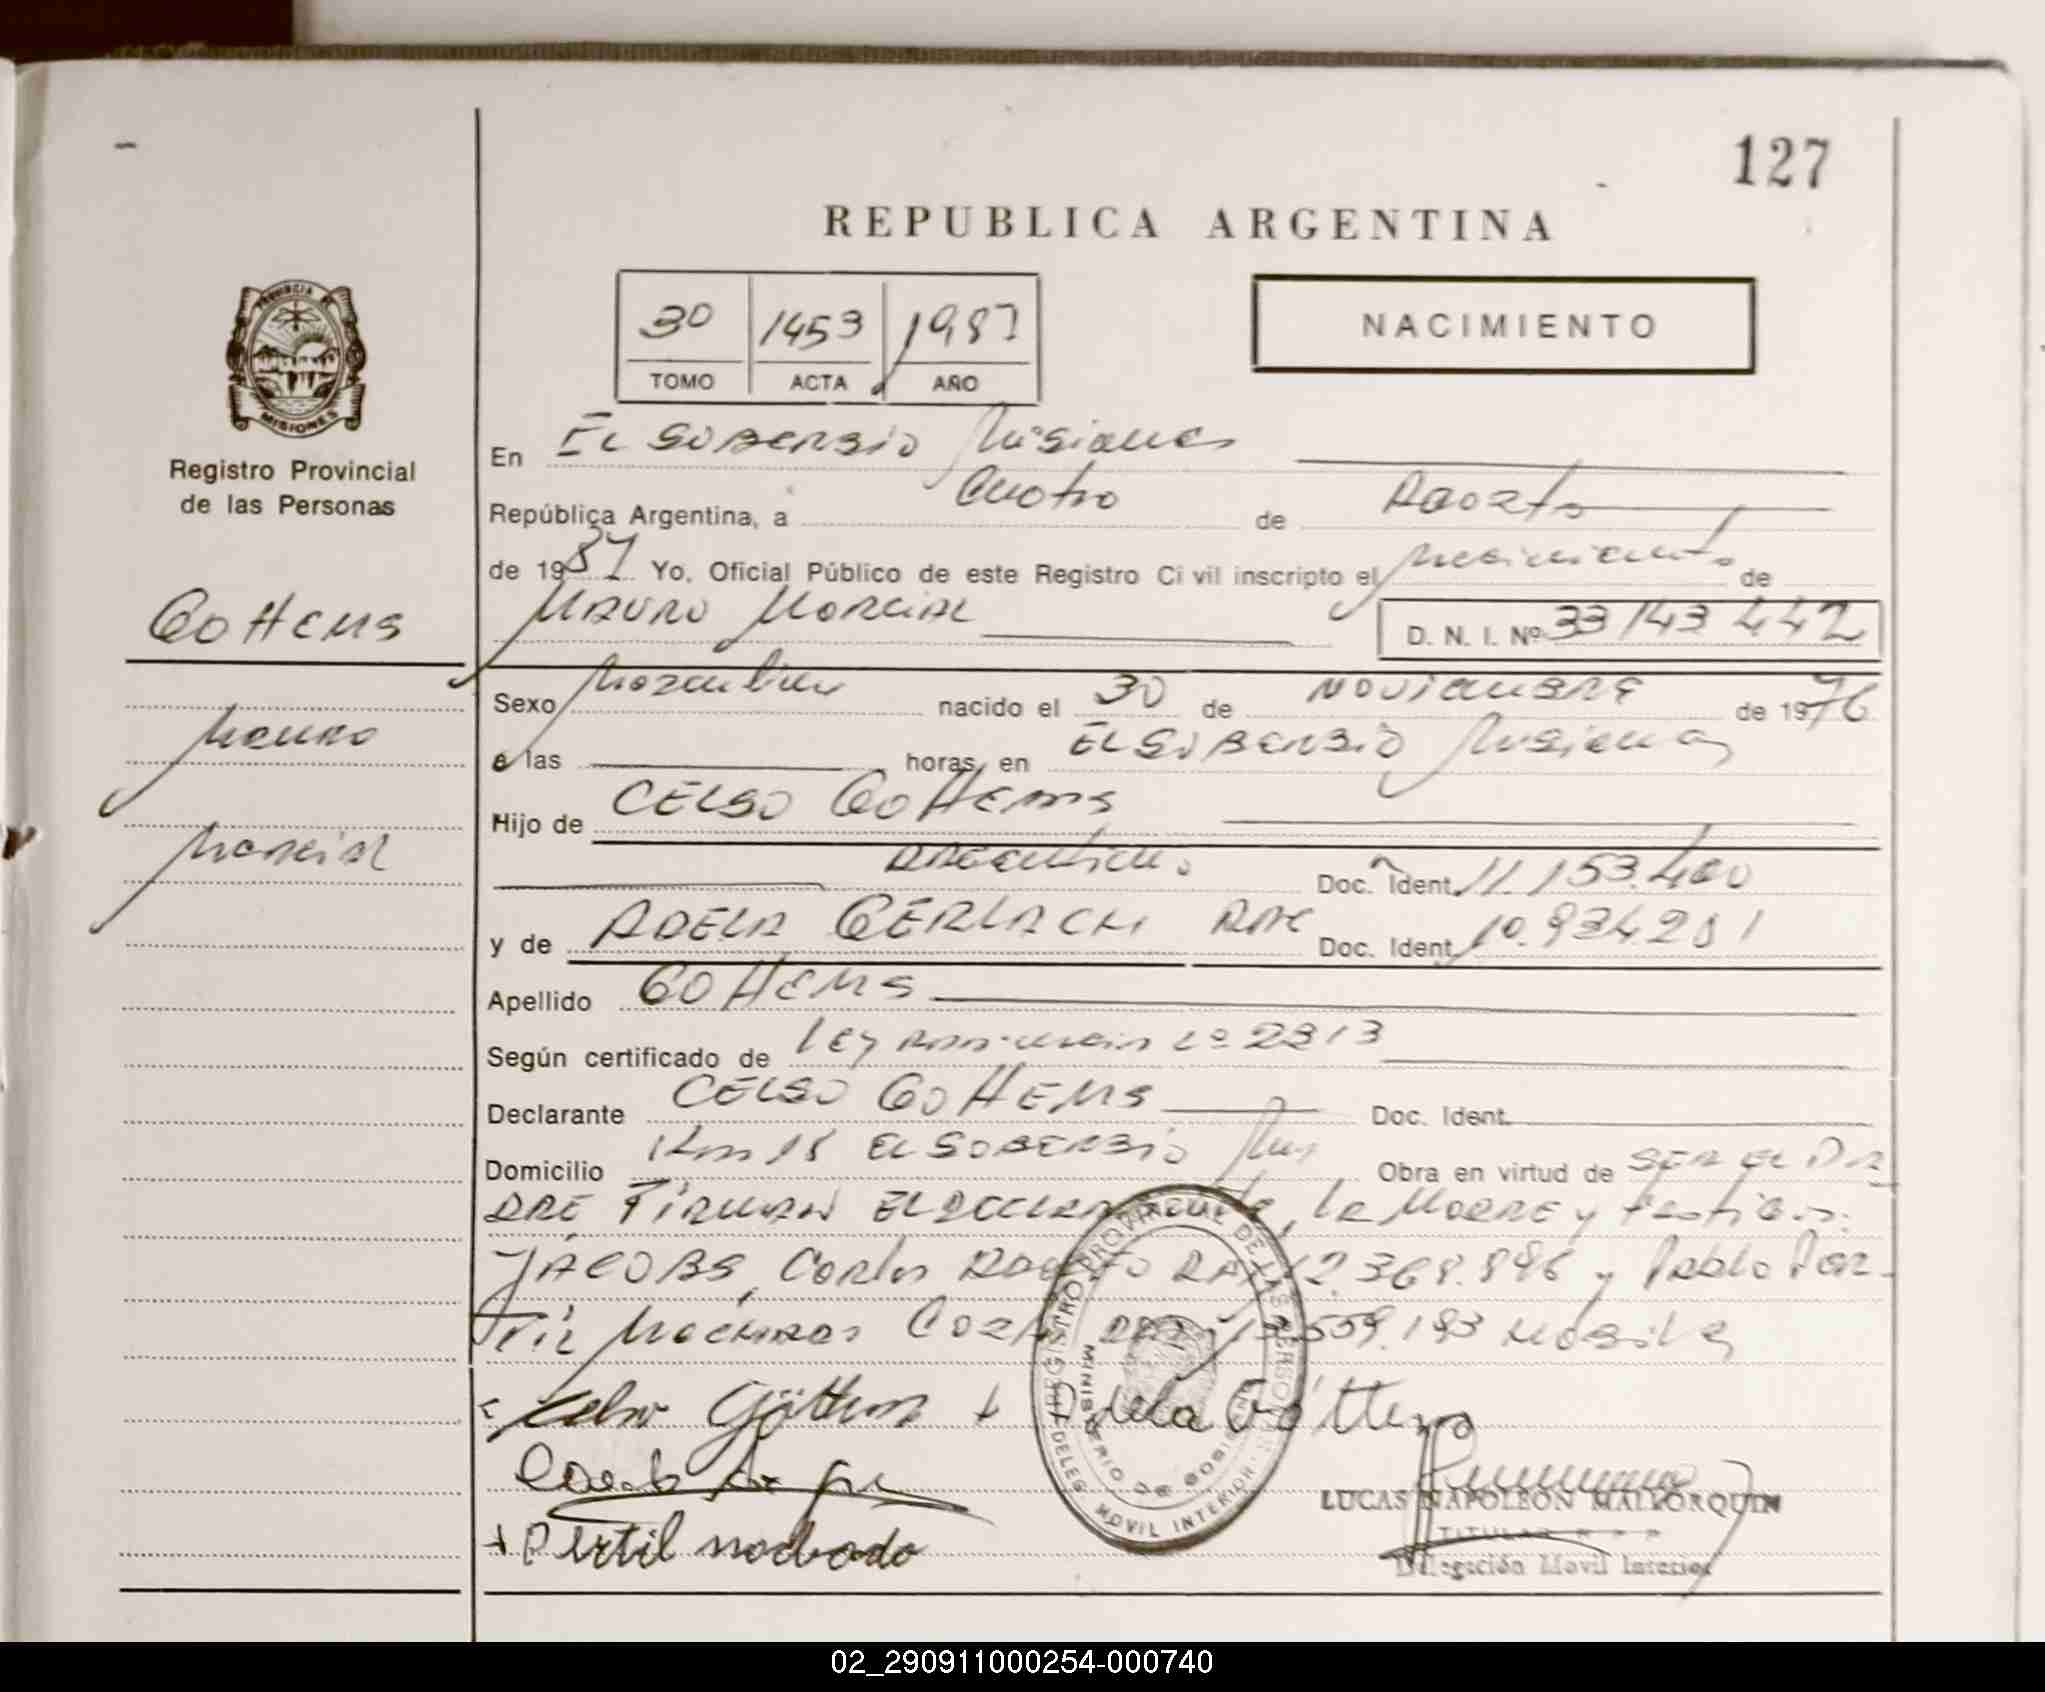 127
REPUBLICA ARGENTINA
3º 1453 1987
TOMO ACTA AÑO
NACIMIENTO
PROVINCIA DE
MISIONES
Registro Provincial
de las Personas
Gottems
Mauro
Marcial
En El Soberbio Misiones
República Argentina, a Cuatro de Agosto
de 1987 Yo, Oficial Público de este Registro Civil inscripto el Nacimiento de
Mauro Marcial D. N. I. Nº 33143442
Sexo Masculino nacido el 30 de Noviembre de 1976
a las horas, en El Soberbio Misiones
Hijo de CELSO Gottems
Argentino Doc. Ident. 11.153.400
y de ADELA GERLACH ARG Doc. Ident. 10.934201
Apellido Gottems
Según certificado de Ley Nº 2313
Declarante CELSO GOTTEMS Doc. Ident.
Domicilio Km 18 El Soberbio Mns Obra en virtud de SER EL PA
DRE Firman El Declarante, la Madre y testigos:
JACOBS, Carlos ARG 12.368.896 y Pablo Per-
til Machado ARG 559.193
Celso Göttems + Adela Göttems
+ Pertil Machado
REGISTRO PROVINCIAL DE LAS PERSONAS
MINISTERIO DE GOBIERNO
DELEG. MOVIL INTERIOR
LUCAS NAPOLEON MALLORQUIN
TITULAR
Delegación Movil Interior
02_290911000254-000740